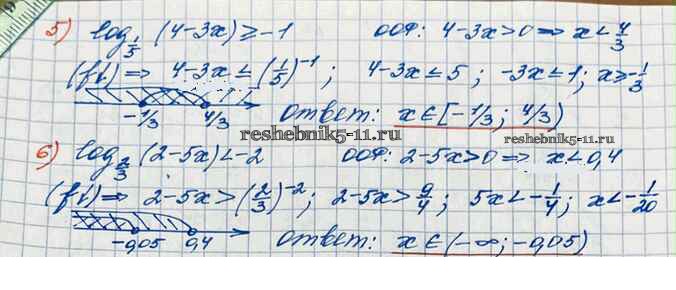 5) log_{1/5} (4-3x) ≥ -1    ООФ: 4-3x>0 => x < 4/3
(f↓) => 4-3x ≤ (1/5)^{-1}; 4-3x ≤ 5; -3x ≤ 1; x ≥ -1/3
-1/3 4/3 Ответ: x ∈ [-1/3; 4/3)
reshebnik5-11.ru reshebnik5-11.ru
6) log_{2/3} (2-5x) < -2    ООФ: 2-5x>0 => x < 0,4
(f↓) => 2-5x > (2/3)^{-2}; 2-5x > 9/4; 5x < -1/4; x < -1/20
-0,05 0,4 Ответ: x ∈ (-∞; -0,05)